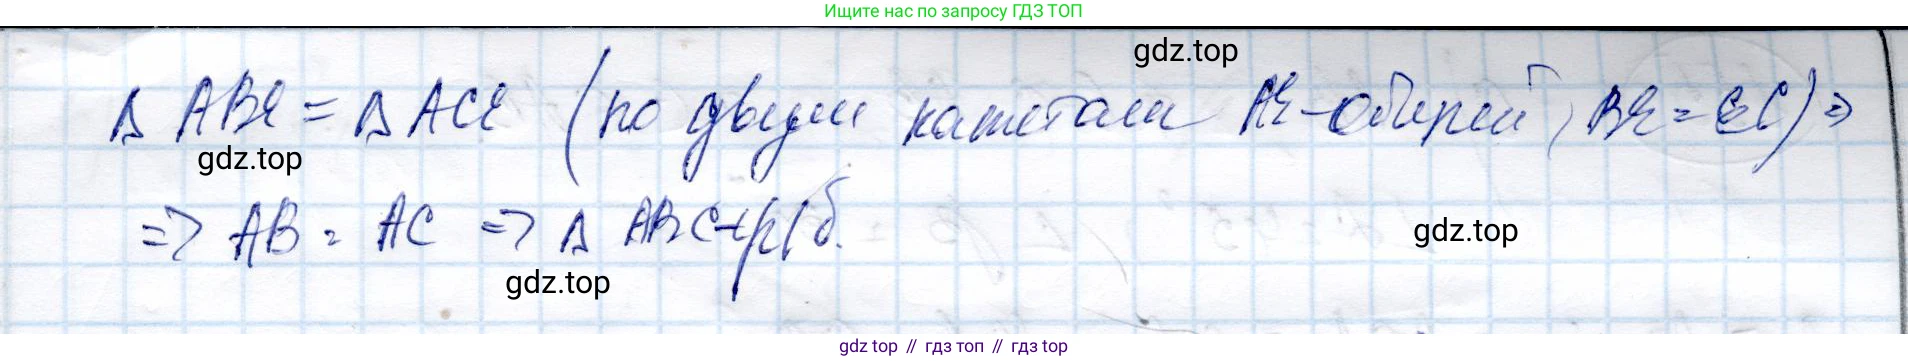 Ищите нас по запросу ГДЗ ТОП
gdz.top
Δ ABE = Δ ACE (по двум катетам AE - общий, BE = EC) ⇒
gdz.top
⇒ AB = AC ⇒ Δ ABC - р/б.
gdz.top
gdz.top
gdz top // гдз топ // гдз top